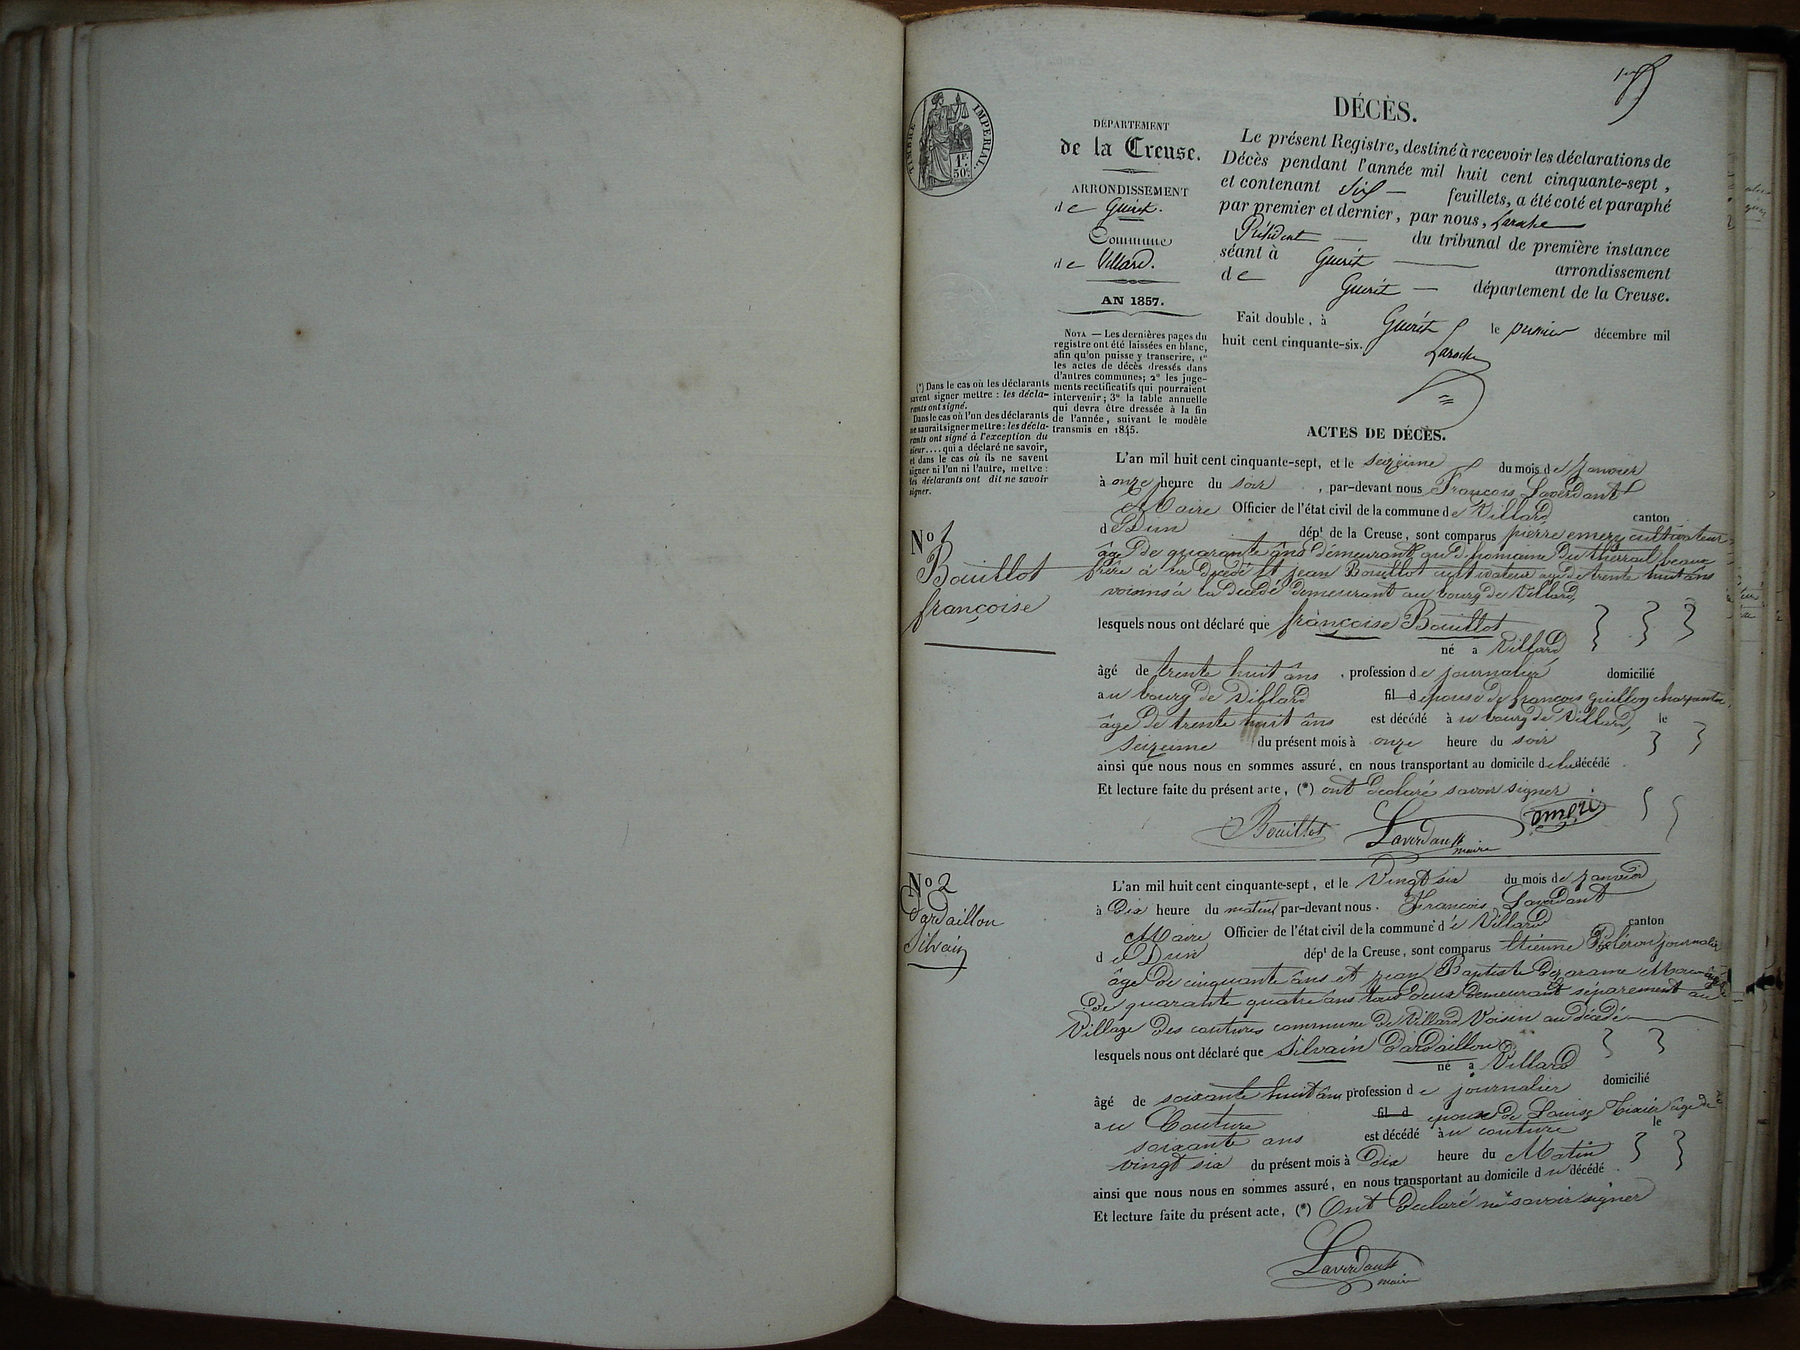 DÉCÈS.
TIMBRE IMPÉRIAL.
1F. 50c.
DÉPARTEMENT
de la Creuse.
ARRONDISSEMENT
de Guéret.
Commune
de Villard.
AN 1857.
Le présent Registre, destiné à recevoir les déclarations de
Décès pendant l'année mil huit cent cinquante-sept,
et contenant six feuillets, a été coté et paraphé
par premier et dernier, par nous, Laroche
Président du tribunal de première instance
séant à Guéret arrondissement
de Guéret département de la Creuse.
Fait double, à Guéret le premier décembre mil
huit cent cinquante-six.
Laroche
NOTA — Les dernières pages du
registre ont été laissées en blanc,
afin qu'on puisse y transcrire, 1°
les actes de décès dressés dans
d'autres communes; 2° les juge-
ments rectificatifs qui pourraient
intervenir; 3° la table annuelle
qui devra être dressée à la fin
de l'année, suivant le modèle
transmis en 1845.
(*) Dans le cas où les déclarants
savent signer mettre : les décla-
rants ont signé.
Dans le cas où l'un des déclarants
ne saurait signer mettre : les décla-
rants ont signé à l'exception du
sieur.... qui a déclaré ne savoir,
et dans le cas où ils ne savent
signer ni l'un ni l'autre, mettre :
les déclarants ont dit ne savoir
signer.
ACTES DE DÉCÈS.
No 1
Bouillot
françoise
L'an mil huit cent cinquante-sept, et le seizième du mois de Janvier
à onze heure du soir, par-devant nous François Laverdant
Maire Officier de l'état civil de la commune de Villard, canton
de Dun dépt de la Creuse, sont comparus pierre emery cultivateur
âgé de quarante ans demeurant au d. homaine du beaux
frère a la décédé et jean Bouillot cultivateur agé de trente huit ans
voisins à la décédé demeurant au bourg de Villard,
lesquels nous ont déclaré que françoise Bouillot
né a Villard
âgé de trente huit ans, profession de journalier domicilié
au bourg de Villard fil d epouse de françois Guillon charpentier,
âgé de trente huit ans est décédé à u bourg de Villard, le
seizieme du présent mois à onze heure du soir
ainsi que nous nous en sommes assuré, en nous transportant au domicile de la décédé.
Et lecture faite du présent acte, (*) ont déclaré savoir signer
Bouillot Laverdant maire emeri
No 2
Dardaillon
Silvain
L'an mil huit cent cinquante-sept, et le Vingt six du mois de janvier
à Dix heure du matin par-devant nous. François Laverdant
Maire Officier de l'état civil de la commune de Villard canton
de Dun dépt de la Creuse, sont comparus Etienne journalier
âgé de cinquante ans et jean Baptiste
de quarante quatre ans tous deux demeurant séparement au
Village des coutures commune de Villard Voisin au décédé
lesquels nous ont déclaré que Silvain Dardaillon
né a Villard
âgé de soixante huit ans profession de journalier domicilié
au Couture fil d epoux de Louise Tixier âgé de
soixante ans est décédé à u couture le
vingt six du présent mois à Dix heure du Matin
ainsi que nous nous en sommes assuré, en nous transportant au domicile du décédé.
Et lecture faite du présent acte, (*) Ont déclaré ne savoir signer
Laverdant
maire